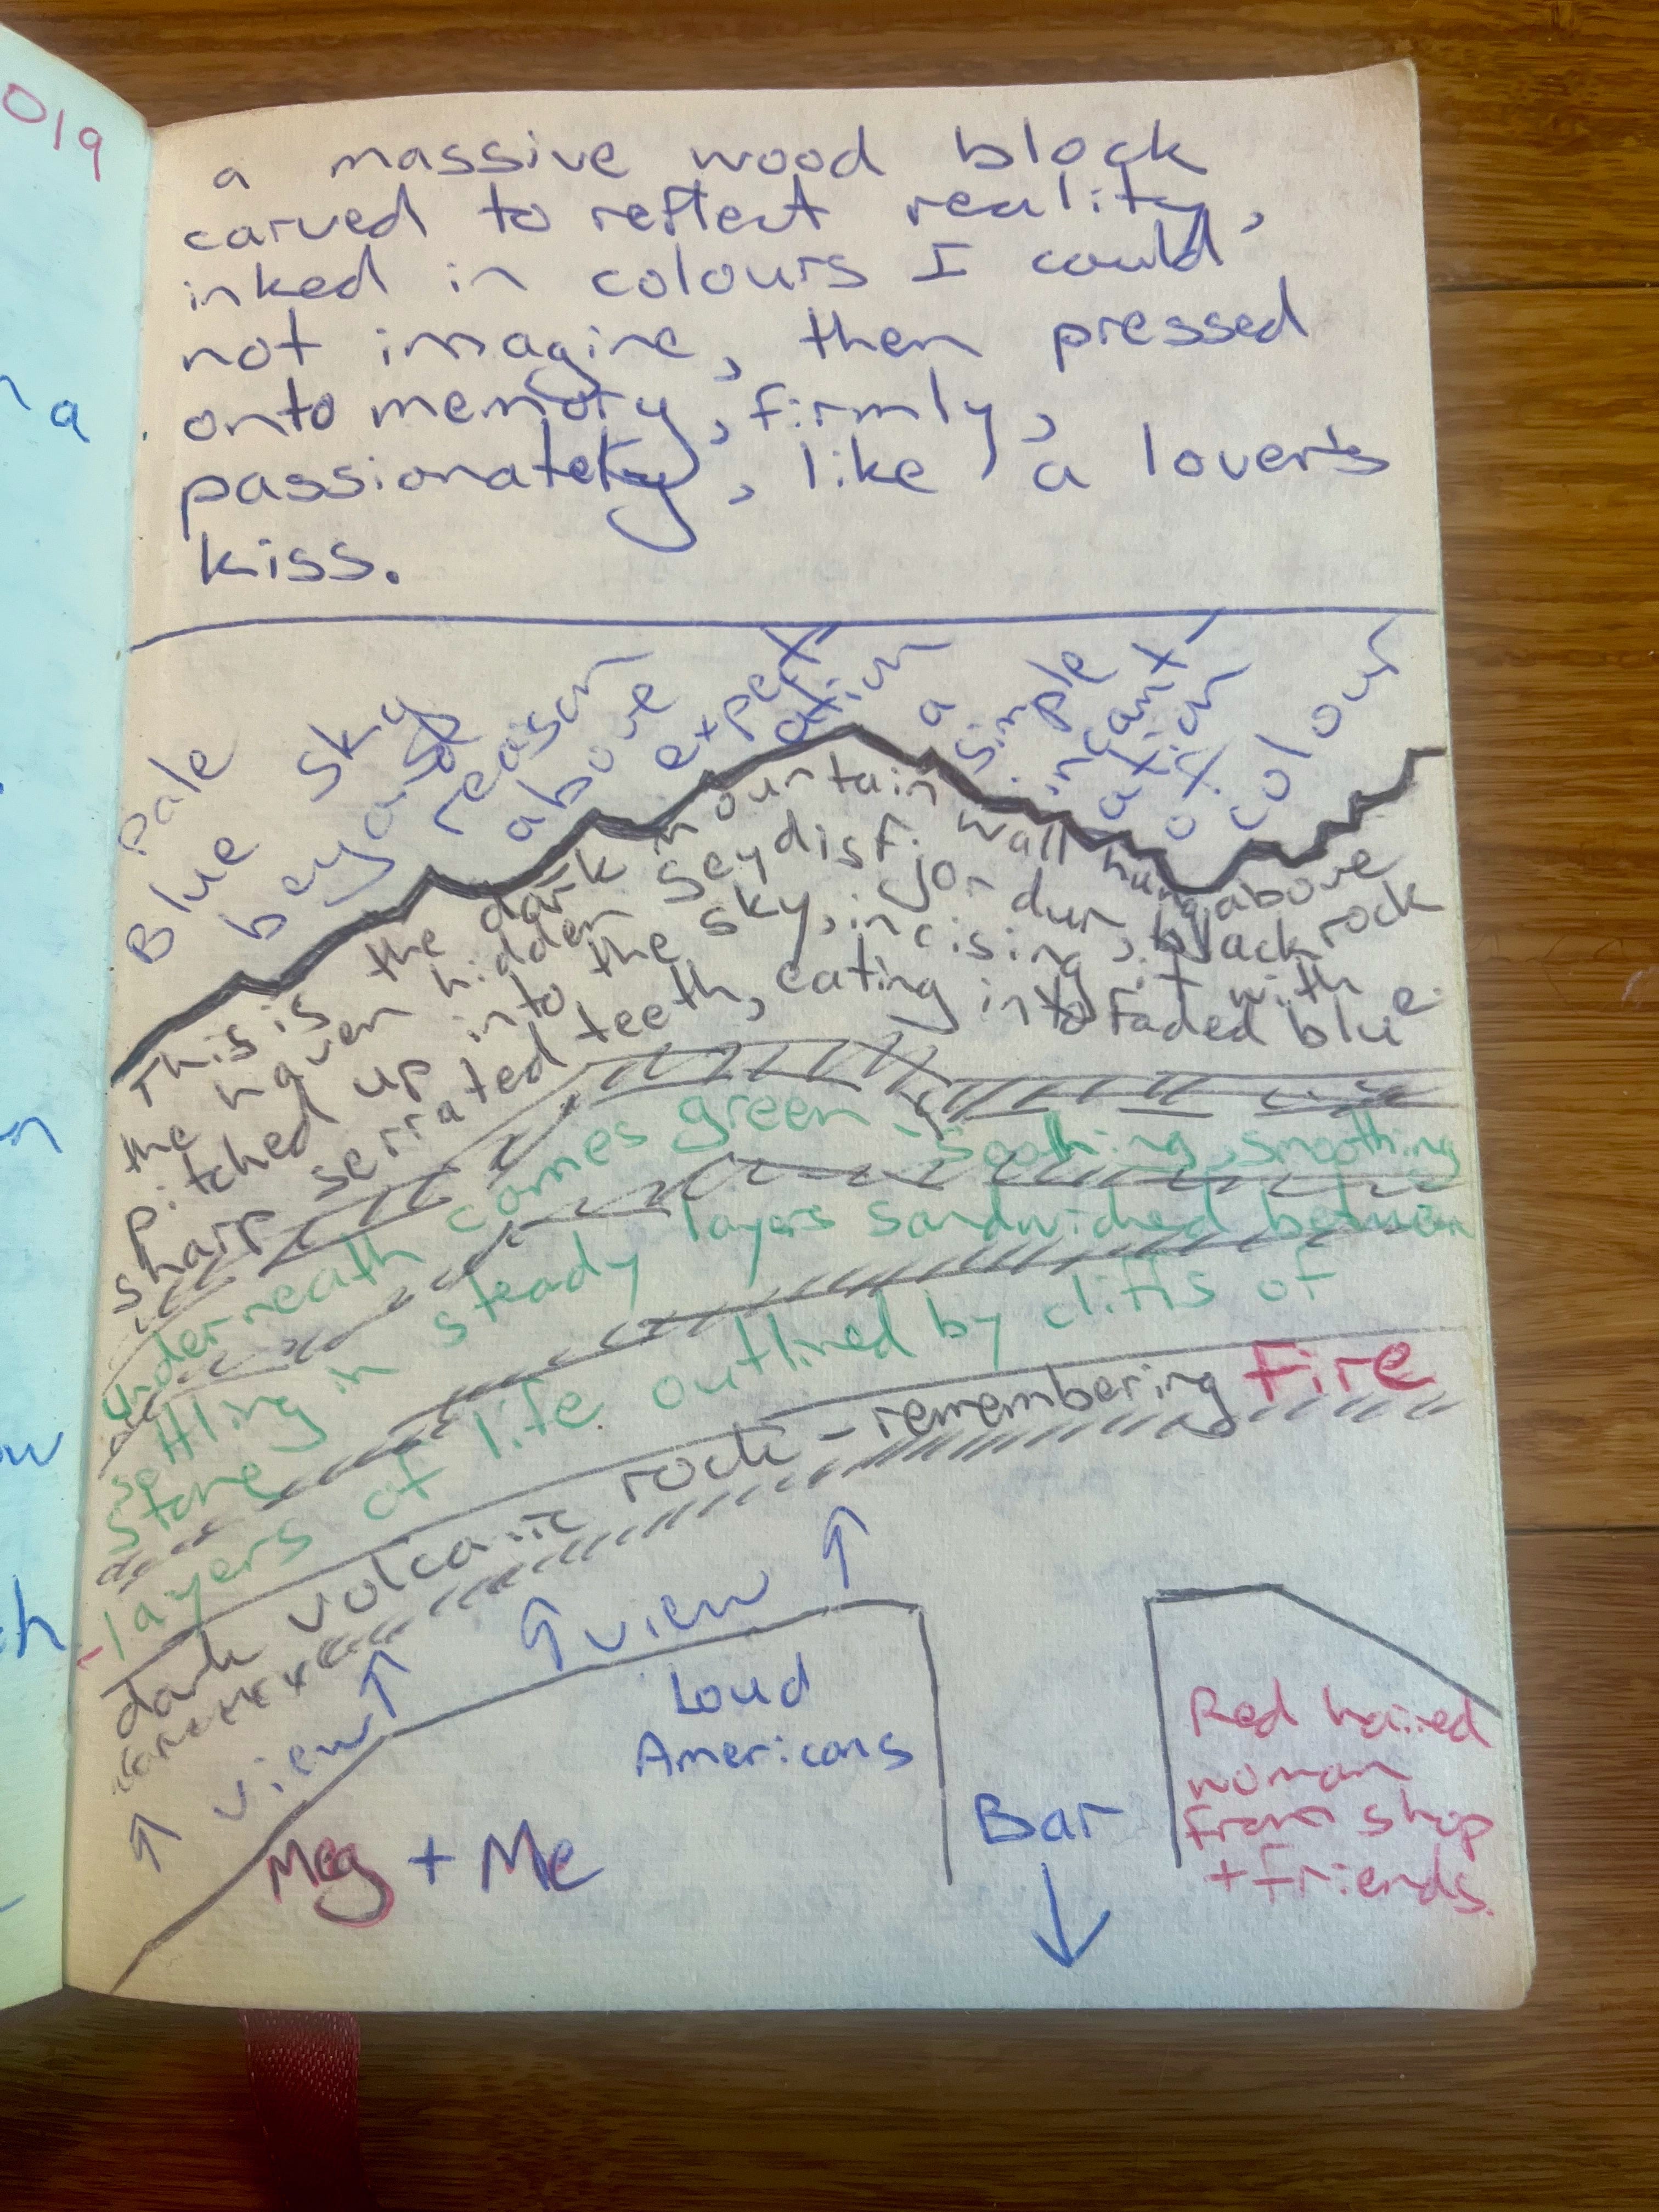 019
a massive wood block
carved to reflect reality,
inked in colours I could
not imagine, then pressed
onto memory, firmly,
passionately, like a lover's
kiss.
a
n
ow
h
Pale
Blue sky
beyond
reason
above
expect
ation
a
simple
incant
ation
of
colour
This is the dark mountain wall hung above
the haven hidden Seydisf.jordur, black rock
pitched up into the sky, incising it with
sharp serrated teeth, eating into faded blue.
underneath comes green - soothing, smoothing
settling in steady layers sandwiched between
stone
-layers of life outlined by cliffs of
dark volcanic rock - remembering Fire
↑ view ↑
↑ view ↑
Loud
Americans
Meg + Me
Bar
↓
Red haired
woman
from shop
+ friends.